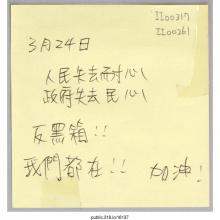 II00317
II00261
3月24日
人民失去耐心
政府失去民心
反黑箱!!
我們都在!! 加油!
public.318.io/6107